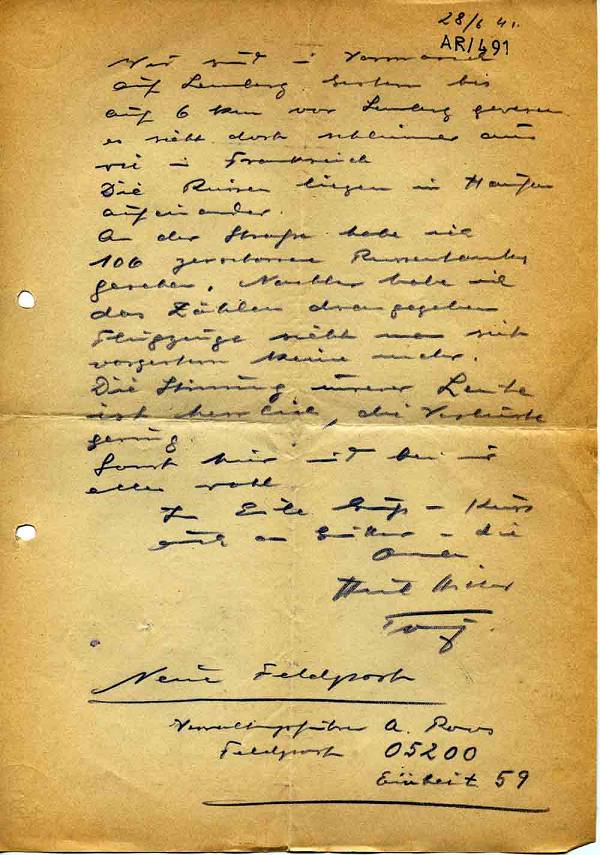 28/6 41.
AR/491
Wir sind im Vormarsch
auf Lemberg Gestern bis
auf 6 km vor Lemberg gewesen
es sieht dort schlimmer aus
wie in Frankreich
Die Russen liegen in Haufen
aufeinander.
An der Straße habe ich
106 zerschossene Russentanks
gesehen. Nachher habe ich
das Zählen drangegeben
Flugzeuge sieht man seit
vorgestern keine mehr.
Die Stimmung unserer Leute
ist herrlich, die Verluste
gering
Sonst hier und bei mir
alles wohl
In Eile Gruß - Kuss
auch an - die
Heil Hitler
Neue Feldpost
Verwaltungsführer A. Roos
Feldpost 05200
Einheit 59